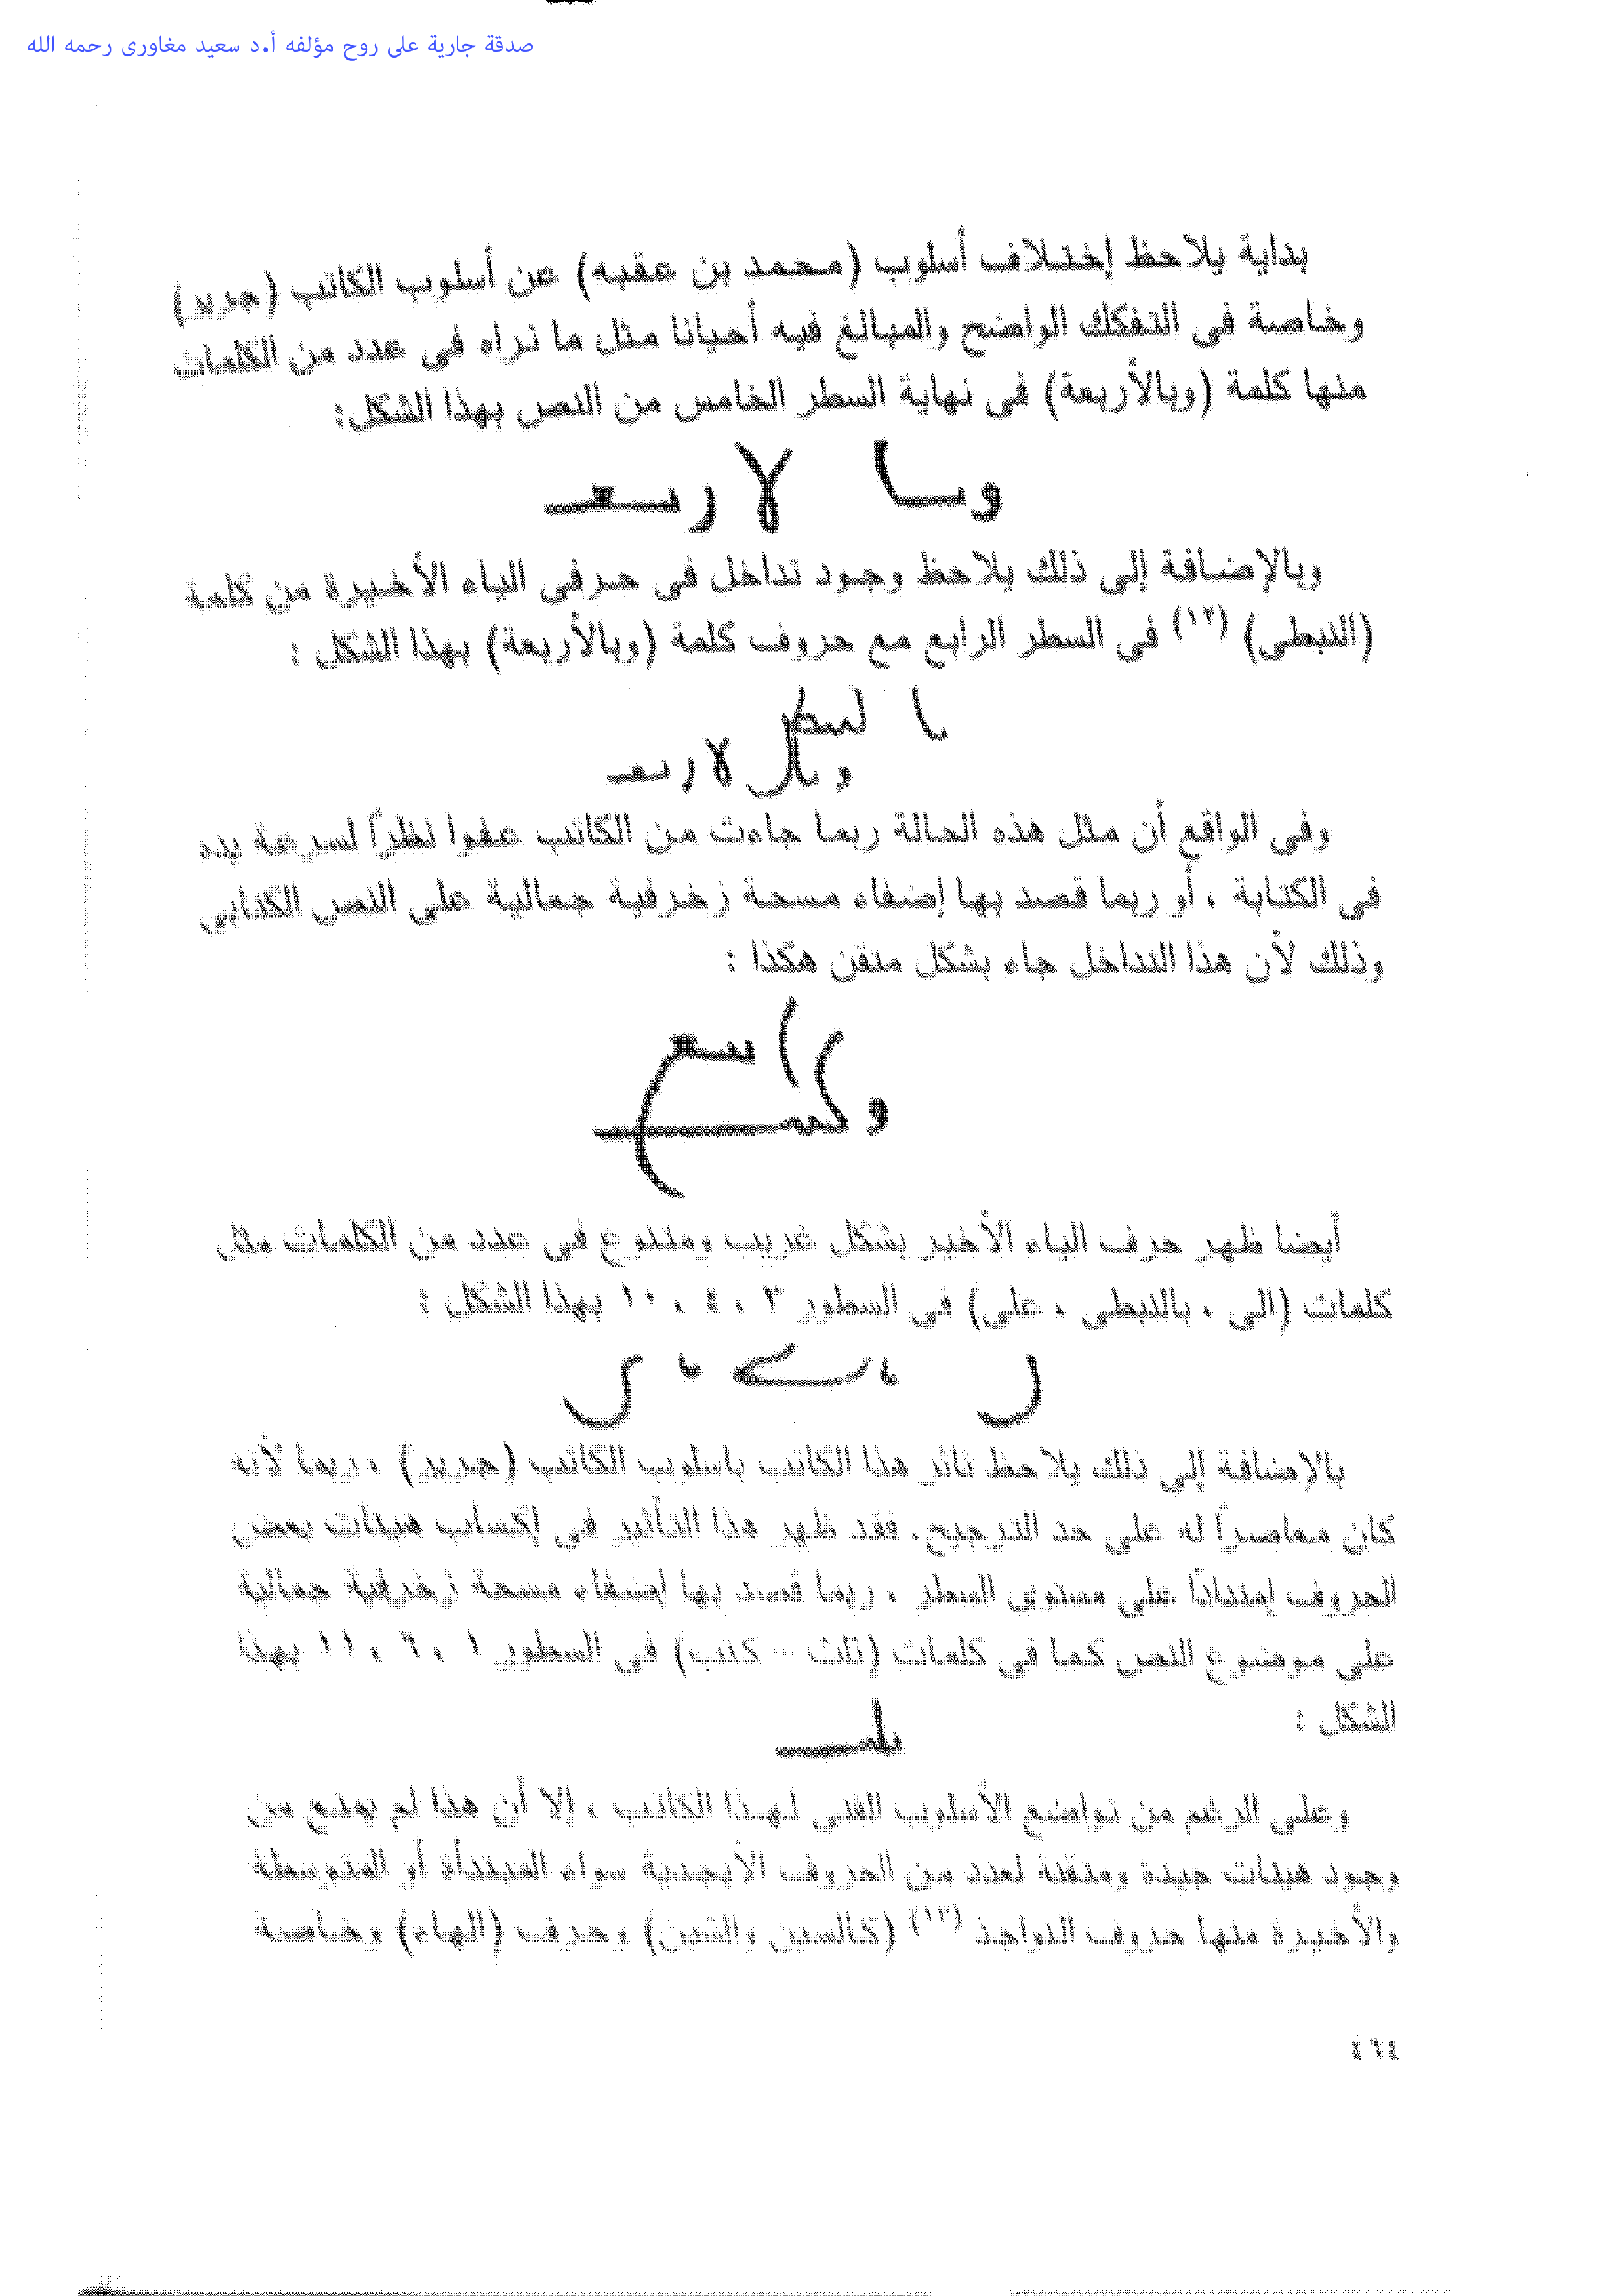 صدقة جارية على روح مؤلفه أ.د سعيد مغاورى رحمه الله
بداية يلاحظ إختلاف أسلوب (محمد بن عقبه) عن أسلوب الكاتب (جرير)
وخاصة فى التفكك الواضح والمبالغ فيه أحيانا مثل ما نراه فى عدد من الكلمات
منها كلمة (وبالأربعة) فى نهاية السطر الخامس من النص بهذا الشكل:
وبالإضافة إلى ذلك يلاحظ وجود تداخل فى حرفى الياء الأخيرة من كلمة
(النبطى) (١٢) فى السطر الرابع مع حروف كلمة (وبالأربعة) بهذا الشكل :
وفى الواقع أن مثل هذه الحالة ربما جاءت من الكاتب عفوا نظراً لسرعة يده
فى الكتابة ، أو ربما قصد بها إضفاء مسحة زخرفية جمالية على النص الكتابى
وذلك لأن هذا التداخل جاء بشكل متقن هكذا :
أيضا ظهر حرف الياء الأخير بشكل غريب ومتنوع فى عدد من الكلمات مثل
كلمات (الى ، بالنبطى ، على) فى السطور ٣ ، ٤ ، ١٠ بهذا الشكل :
بالإضافة إلى ذلك يلاحظ تاثر هذا الكاتب باسلوب الكاتب (جرير) ، ربما لأنه
كان معاصراً له على حد الترجيح . فقد ظهر هذا التأثير فى إكساب هيئات بعض
الحروف إمتداداً على مستوى السطر ، ربما قصد بها إضفاء مسحة زخرفية جمالية
على موضوع النص كما فى كلمات (ثلث - كتب) فى السطور ١ ، ٦ ، ١١ بهذا
الشكل :
وعلى الرغم من تواضع الأسلوب الفنى لهذا الكاتب ، إلا أن هذا لم يمنع من
وجود هيئات جيدة ومتقنة لعدد من الحروف الأبجدية سواء المبتدأة أو المتوسطة
والأخيرة منها حروف النواجذ (١٣) (كالسين والشين) وحرف (الهاء) وخاصة
٤٦٤